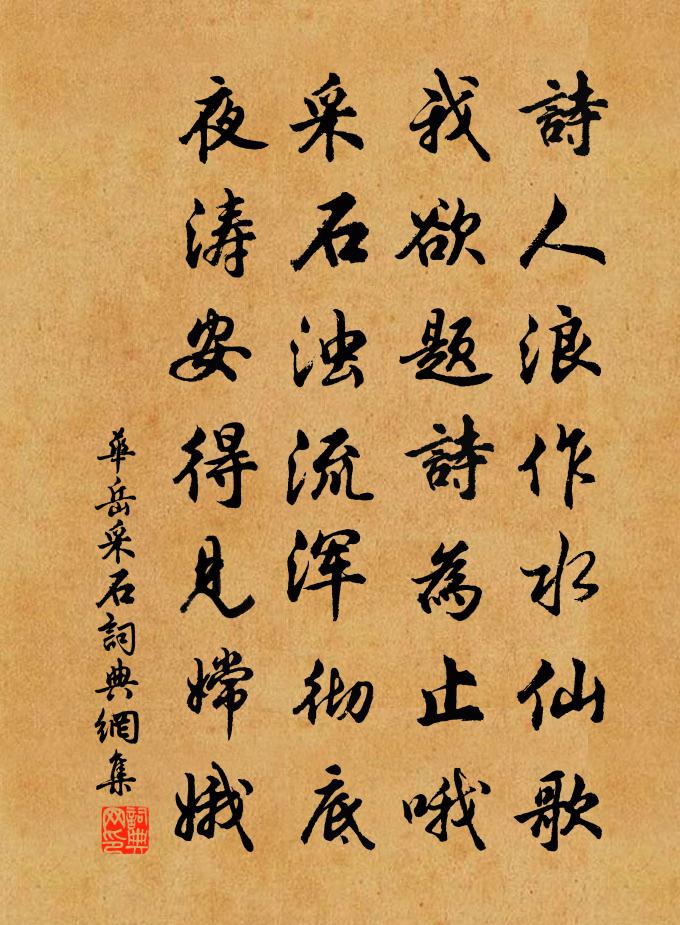 詩人浪作水仙歌
我欲题詩為止哦
采石浊流浑彻底
夜涛安得見嫦娥
華岳采石詞典網集
詞典网印